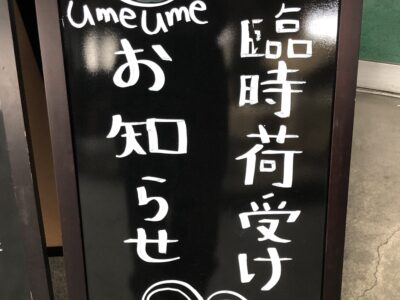 umeume
臨時荷受け
お知らせ